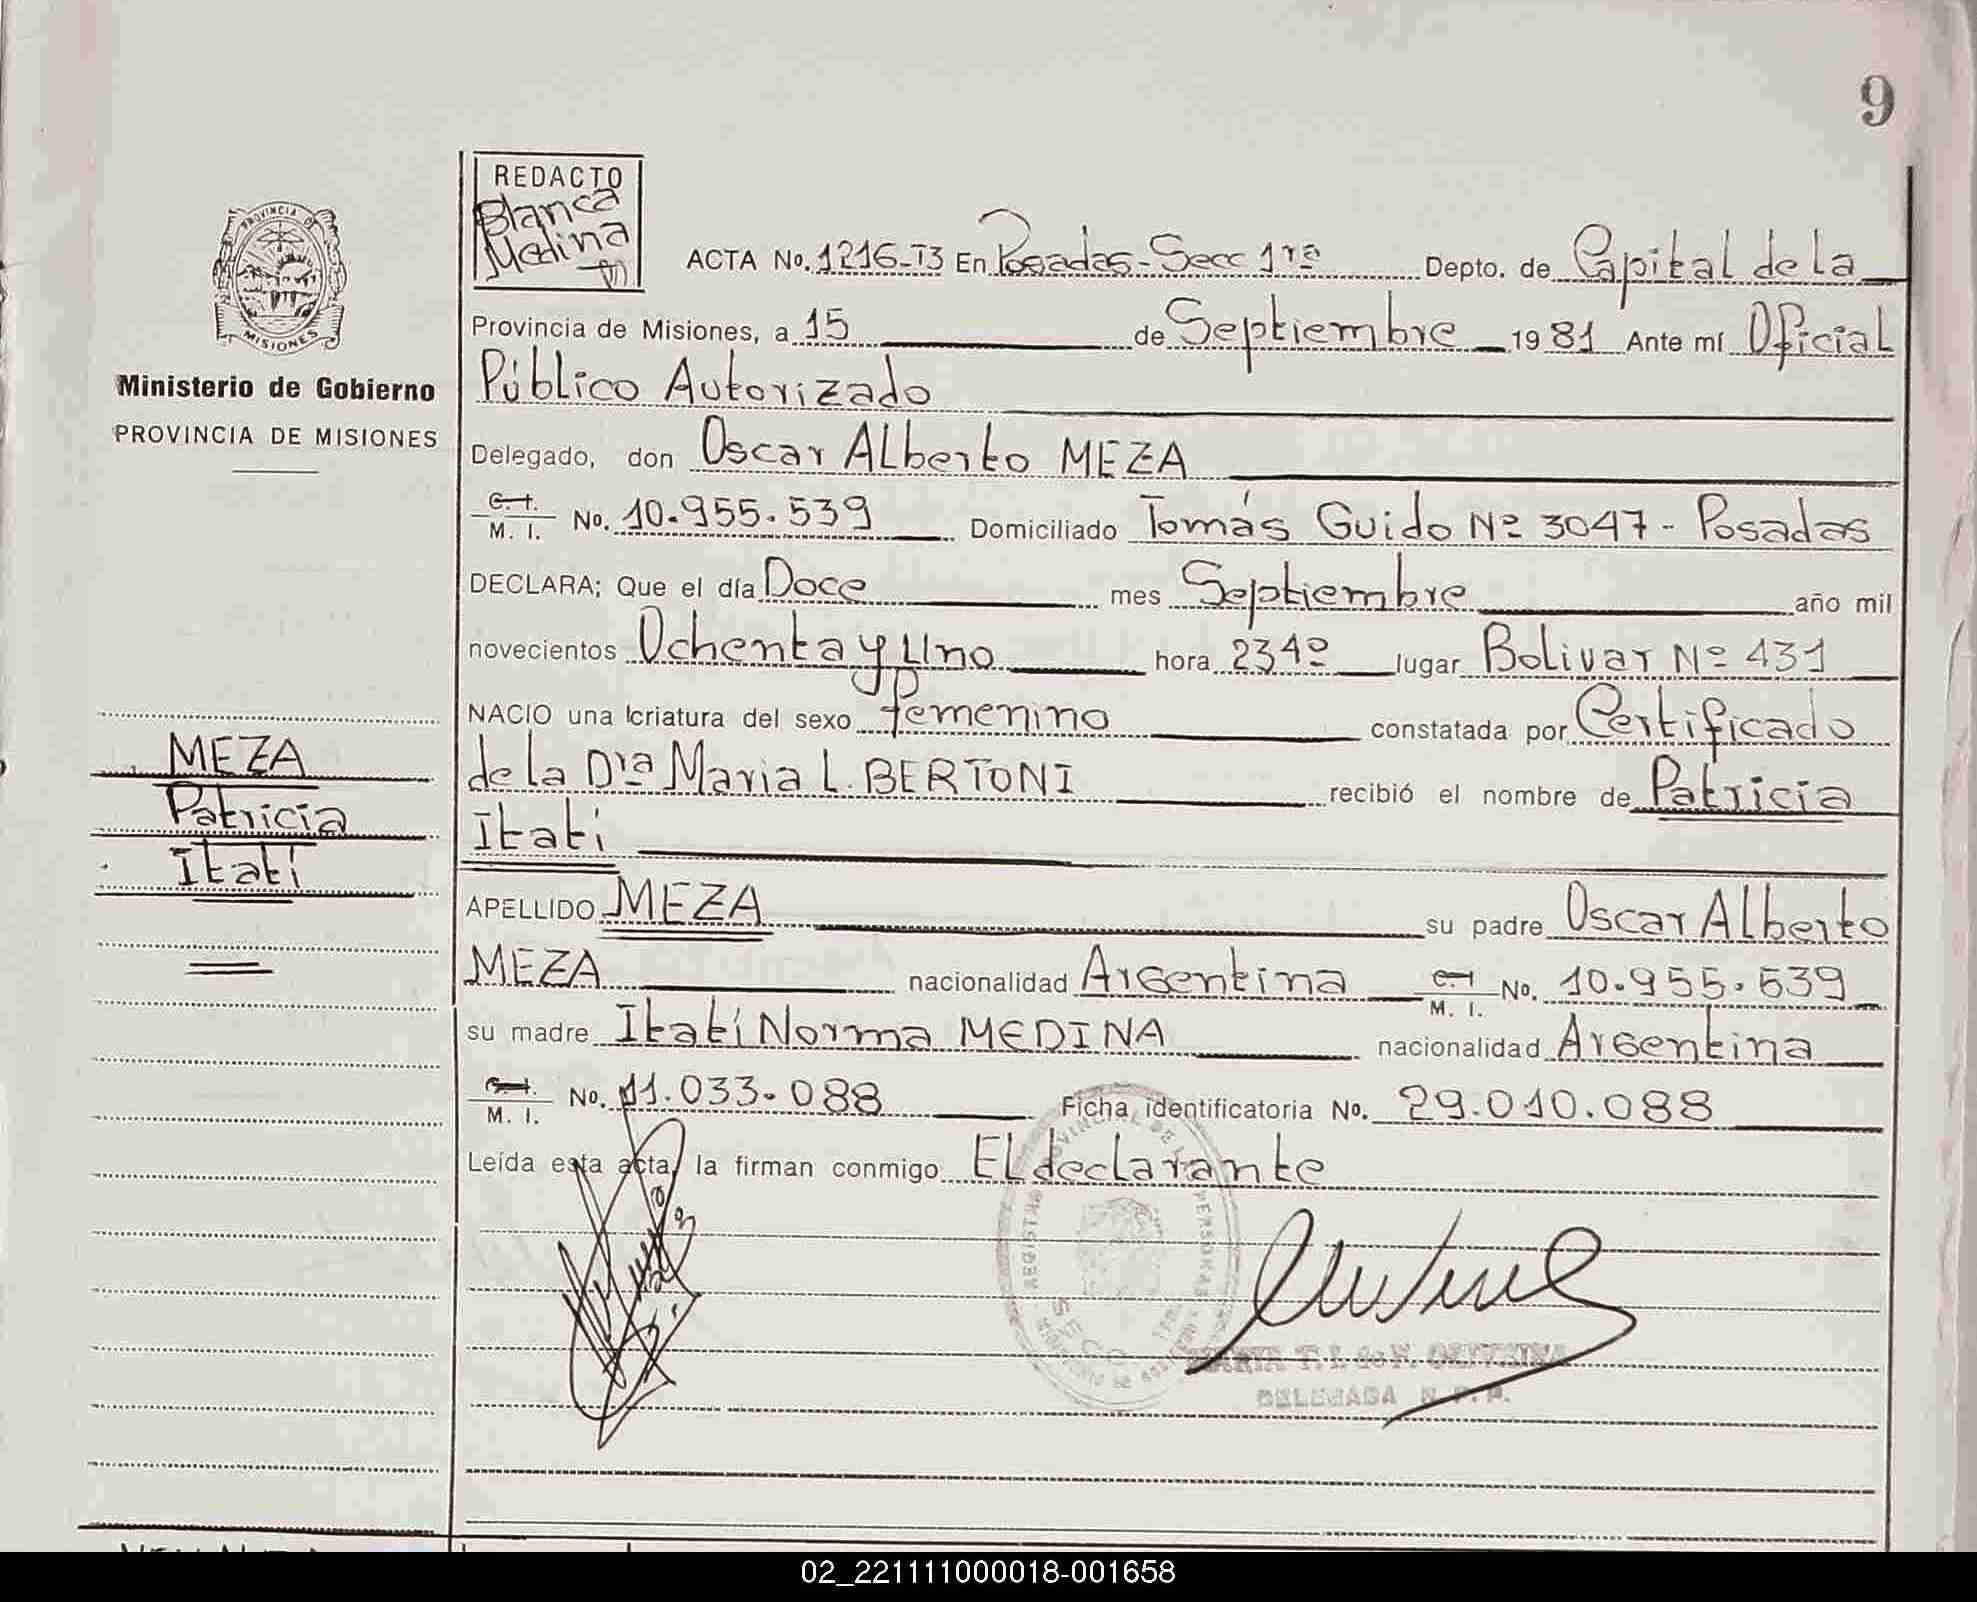 9
REDACTO
Blanca
Medina
PROVINCIA DE
MISIONES
Ministerio de Gobierno
PROVINCIA DE MISIONES
ACTA No. 1216-T3 En Posadas-Secc 1ra Depto. de Capital de la
Provincia de Misiones, a 15 de Septiembre 1981 Ante mí Oficial
Público Autorizado
Delegado, don Oscar Alberto MEZA
C. I.
M. I. No. 10.955.539 Domiciliado Tomás Guido Nº 3047 - Posadas
DECLARA; Que el día Doce mes Septiembre año mil
novecientos Ochenta y Uno hora 23 4º lugar Bolivar Nº 431
NACIO una criatura del sexo femenino constatada por Certificado
de la Dra Maria L. BERTONI recibió el nombre de Patricia
Itatí
APELLIDO MEZA su padre Oscar Alberto
MEZA nacionalidad Argentina C. I.
M. I. No. 10.955.539
su madre Itatí Norma MEDINA nacionalidad Argentina
C. I.
M. I. No. 11.033.088 Ficha identificatoria No. 29.010.088
Leída esta acta, la firman conmigo El declarante
MEZA
Patricia
Itatí
SECC
DELEGADA R. P. P.
02_221111000018-001658